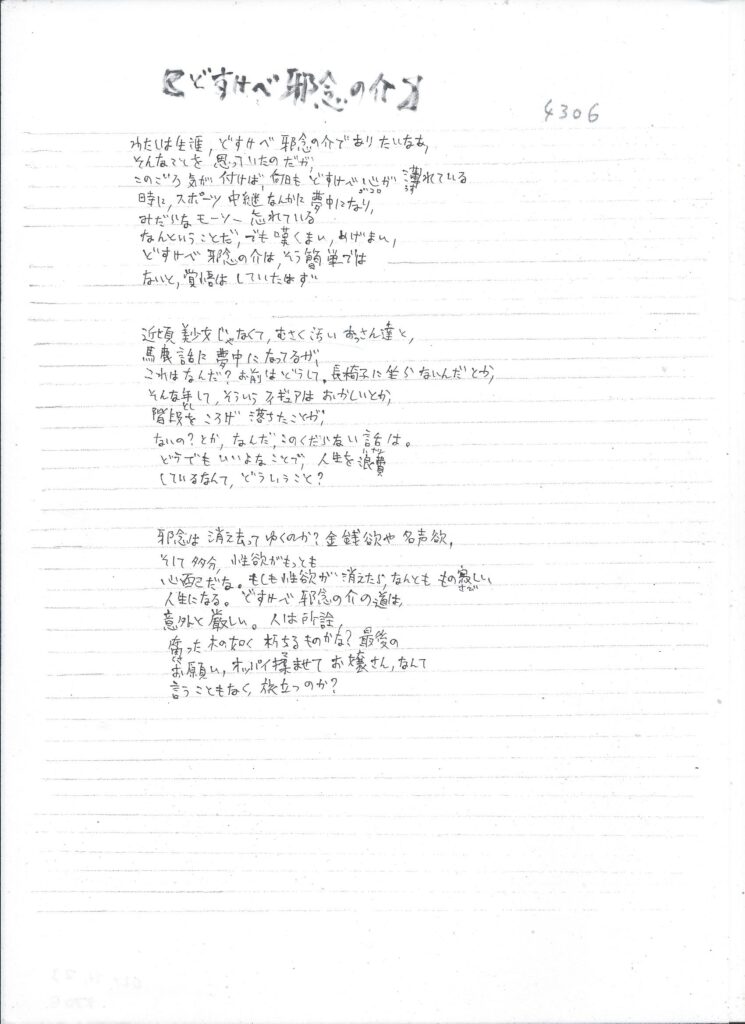 【どすけべ邪念の介】
4306
わたしは生涯,どすけべ邪念の介でありたいなあ,
そんなことを思っていたのだが,
このごろ気が付けば,何日もどすけべ心が薄れている
ごころ
うす
時に,スポーツ中継なんかに夢中になり,
みだらなモーソー忘れている
なんということだ,でも嘆くまい,めげまい,
どすけべ邪念の介は,そう簡単では
ないと,覚悟はしていたはず
近頃美少女じゃなくて,むさく汚いおっさん達と,
馬鹿話に夢中になってるが,
これはなんだ?お前はどうして,長椅子に坐らないんだとか,
そんな年して,そういうフィギュアはおかしいとか,
とし
階段をころげ落ちたことが,
ないの?とか,なんだ,このくだらない話は。
どうでもいいよなことで,人生を浪費
しているなんて,どういうこと?
邪念は消え去ってゆくのか?金銭欲や名声欲,
そして多分,性欲がもっとも
心配だな。もしも性欲が消えたら,なんとももの寂しい
さび
人生になる。どすけべ邪念の介の道は,
意外と厳しい。人は所詮,
腐った木の如く朽ちるものかな?最後の
お願い,オッパイ揉ませてお嬢さん,なんて
言うこともなく,旅立つのか?